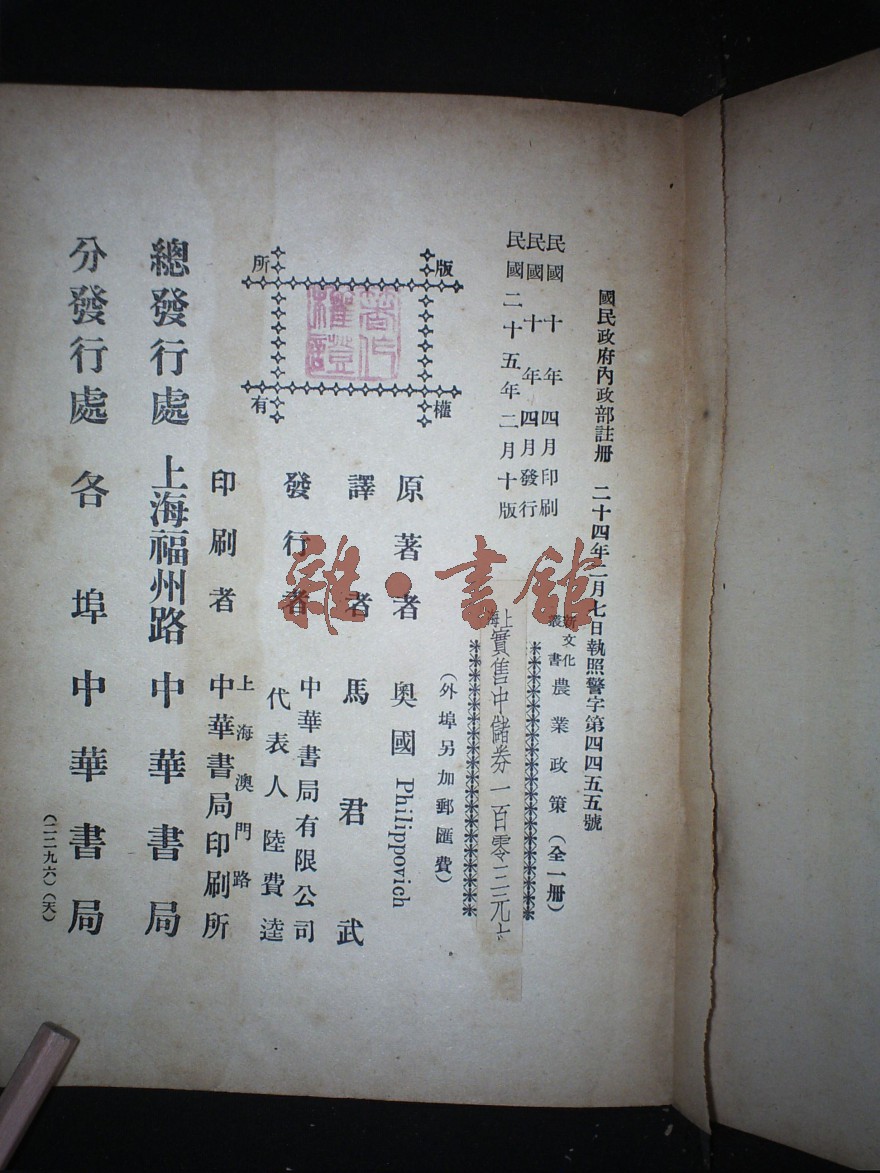 國民政府內政部註冊 二十四年二月七日執照警字第四四五五號
民國十年四月印刷
民國十年四月發行
民國二十五年二月十版
新文化叢書 農業政策（全一冊）
上海實售中儲券一百零三元
（外埠另加郵匯費）
版權所有
著作權證
原著者 奧國Philippovich
譯者 馬君武
發行者 中華書局有限公司
代表人 陸費逵
印刷者 上海澳門路
中華書局印刷所
總發行處 上海福州路 中華書局
分發行處 各埠 中華書局
（二二九六）（天）
雜·書館